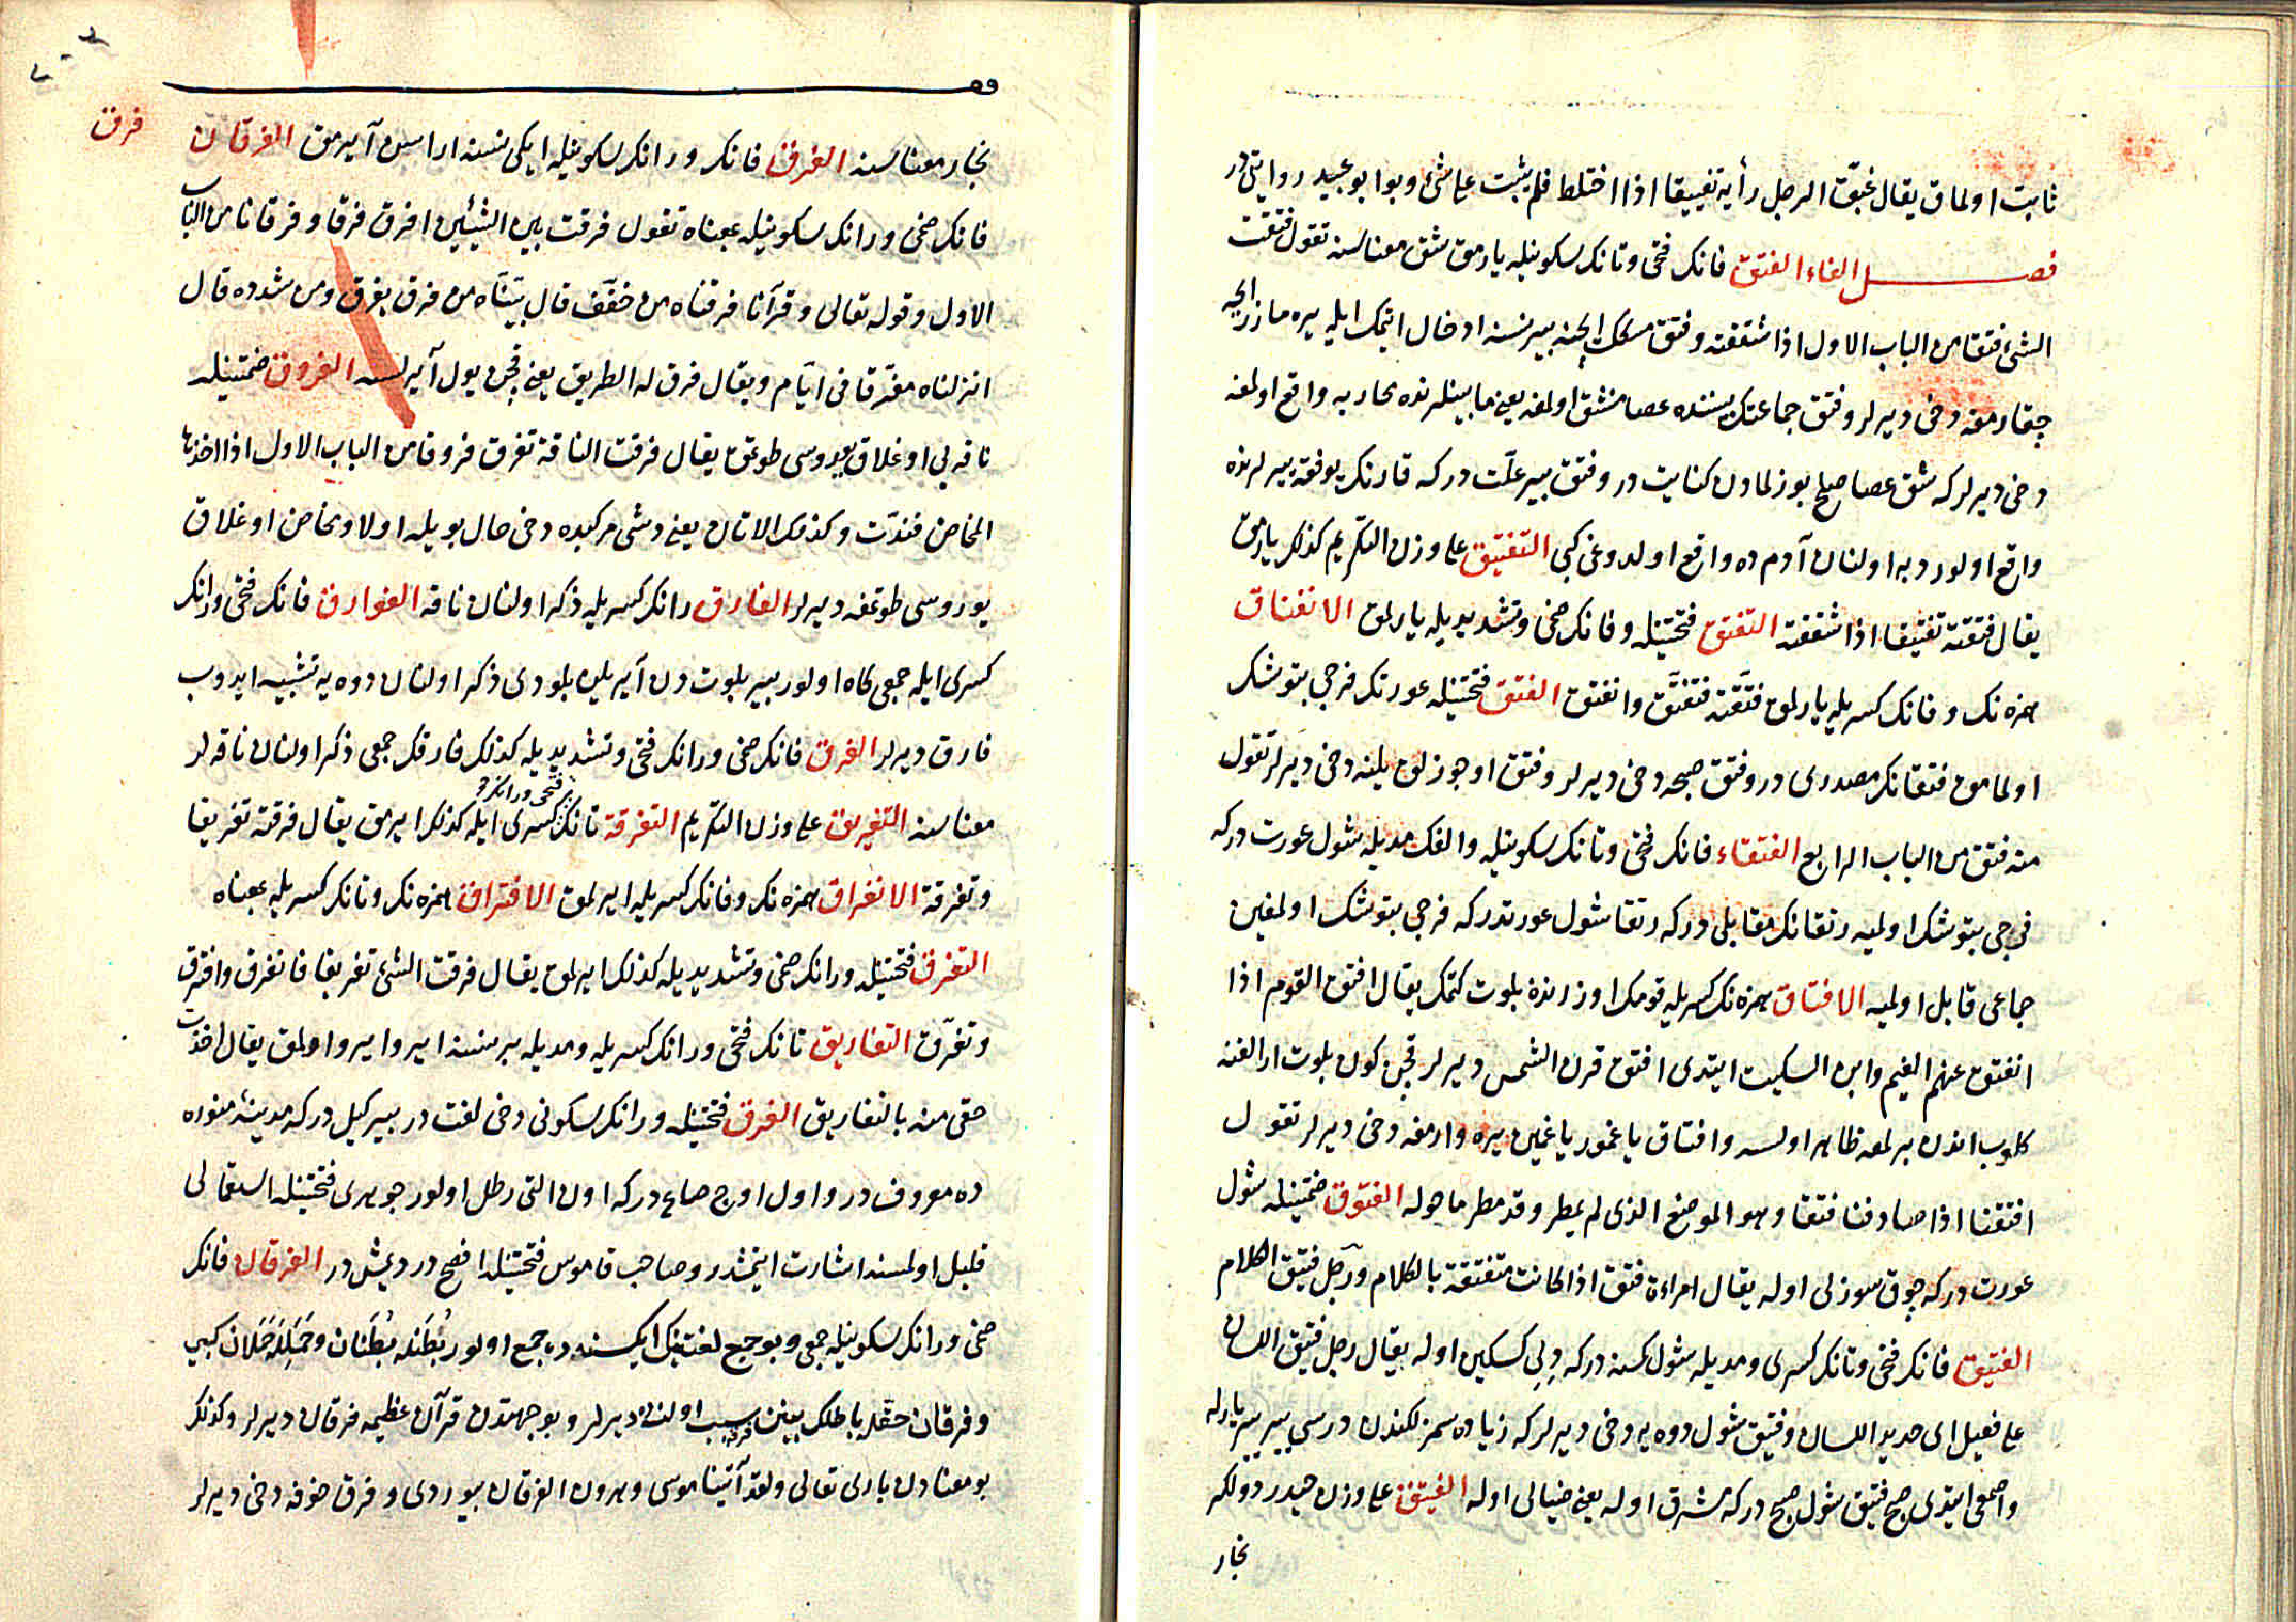 ثابت اولماق يقال غبّق الرجل رأيه تغبيقا اذا اختلط فلم يثبت على شئ وبو ابو عبيد روايتى در
فصل الفاء الفتق فانك فتحى وتانك سكونيله يارمق شق معناسنه تقول فتقت
الشئ فتقا من الباب الاول اذا شققته وفتق مسكك ايچنه بير نسنه ادخال اتمك ايله يره مازرايحه
چقارمغه دخى ديرلر وفتق جماعتك بيننده عصا منشق اولمغه يعنى مابينلرنده محاربه واقع اولمغه
دخى ديرلر كه شق عصا صلح بوزلمادن كنايت در وفتق بير علّت در كه قارنك يوفقه يرلرنده
واقع اولور دبه اولنان آدم ده واقع اولدوغى كبى التفتيق على وزن التكريم كذلك يارمق
يقال فتقته تفتيقا اذا شققته التفتق فتحتينله وفانك ضمى وتشديديله يارلمق الانفتاق
همزه نك وفانك كسريله يارلمق فتّقته فتفتّق وانفتق الفتق فتحتينله عورتك فرجى بتوشك
اولمامق فتقانك مصدرى در وفتق صبحه دخى ديرلر وفتق اوجوزلق يلنه دخى ديرلر تقول
منه فتق من الباب الرابع الفتقاء فانك فتحى وتانك سكونيله والفك مديله شول عورت در كه
فرجى بتوشك اولميه رتقانك مقابلى در كه رتقا شول عورتدر كه فرجى بتوشك اولمغين
جماعى قابل اولميه الافتاق همزه نك كسريله قومك اوزرنده بلوت كتمك يقال افتق القوم اذا
انفتق عنهم الغيم وابن السكيت ايتدى افتق قرن الشمس ديرلر قچن كون بلوت ارالغنه
كلوب اندن برلمعه ظاهر اولسه وافتاق ياغمور ياغمين يره وارمغه دخى ديرلر تقول
افتقنا اذا صادفنا فتقا وهو الموضع الذى لم يمطر وقد مطر ما حوله الفتوق ضمتينله شول
عورت در كه چوق سوزلى اوله يقال امراءة فتق اذا كانت متفتقة بالكلام ورجل فتيق الكلام
الفتيق فانك فتحى وتانك كسرى ومديله شول كسنه در كه ديلى كسكين اوله يقال رجل فتيق اللسان
على فعيل اى حديد اللسان وفتيق شول دوه يه دخى ديرلر كه زياده سمزلكندن درسى يير يير يارله
واصمعى ايتدى صبح فتيق شول صبح در كه مشرق اوله يعنى ضيالى اوله الفيتق على وزن حيدر دولكر
نجار
نجار معناسنه الفرق فانك ورانك سكونيله ايكى نسنه اراسن آيرمق الفرقان
فرق
فانك ضمى ورانك سكونيله بمعناه تقول فرقت بين الشيئين افرق فرقا وفرقانا من الباب
الاول وقوله تعالى وقرآنا فرقناه من خفّف قال بيّنّاه من فرق يفرق ومن شدده قال
انزلناه مفرّقا فى ايّام ويقال فرق له الطريق يعنى قچن يول آيرلسه الفروق ضمتينله
ناقه بى اوغلاق بوروسى طوتمق يقال فرقت الناقة تفرق فروقا من الباب الاول اذا اخذها
المخاض فندّت وكذلك الاتان يعنى دشى مركبده دخى حال بويله اولا ومخاض اوغلاق
بوروسى طوتمغه ديرلر الفارق رانك كسريله ذكر اولنان ناقه الفوارق فانك فتحى ورانك
كسرى ايله جمعى كاه اولور بير بلوت دن آيريلن بلودى ذكر اولنان دوه يه تشبيه ايدوب
فارق ديرلر الفرق فانك ضمى ورانك فتحى وتشديديله كذلك فارقك جمعى ذكر اولنان ناقه لر
معناسنه التفريق على وزن التكريم التفرقة تانك فتحى ورانك كسرى ايله كذلك ايرمق يقال فرقته تفريقا
وتفرقة الانفراق همزه نك وفانك كسريله ايرلمق الافتراق همزه نك وتانك كسريله بمعناه
التفرق فتحتينله ورانك ضمى وتشديديله كذلك ايرلمق يقال فرقت الشئ تفريقا فانفرق وافترق
وتفرّق التفاريق تانك فتحى ورانك كسريله ومديله بر نسنه ايرو ايرو اولمق يقال اخذت
حقى منه بالتفاريق الفرق فتحتينله ورانك سكونى دخى لغت در بير كيل در كه مدينۀ منوره
ده معروف در واول اوچ صاع در كه اون التى رطل اولور جوهرى فتحتينله استعمالى
قليل اولمسنه اشارت ايتمشدر وصاحب قاموس فتحتينله افصح در ديمش در الفرقان فانك
ضمى ورانك سكونيله جمعى وبو جمع لغتينك ايكيسنده ده جمع اولور بُطَنله بُطْنان وحَمَلله حُمْلان كبى
وفرقان حقله باطلك بينن فرقه سبب اولنه ديرلر وبو جهتدن قرآن عظيمه فرقان ديرلر وكذلك
بو معنادن بارى تعالى ولقد آتينا موسى وهرون الفرقان بيوردى وفرق خوفه دخى ديرلر